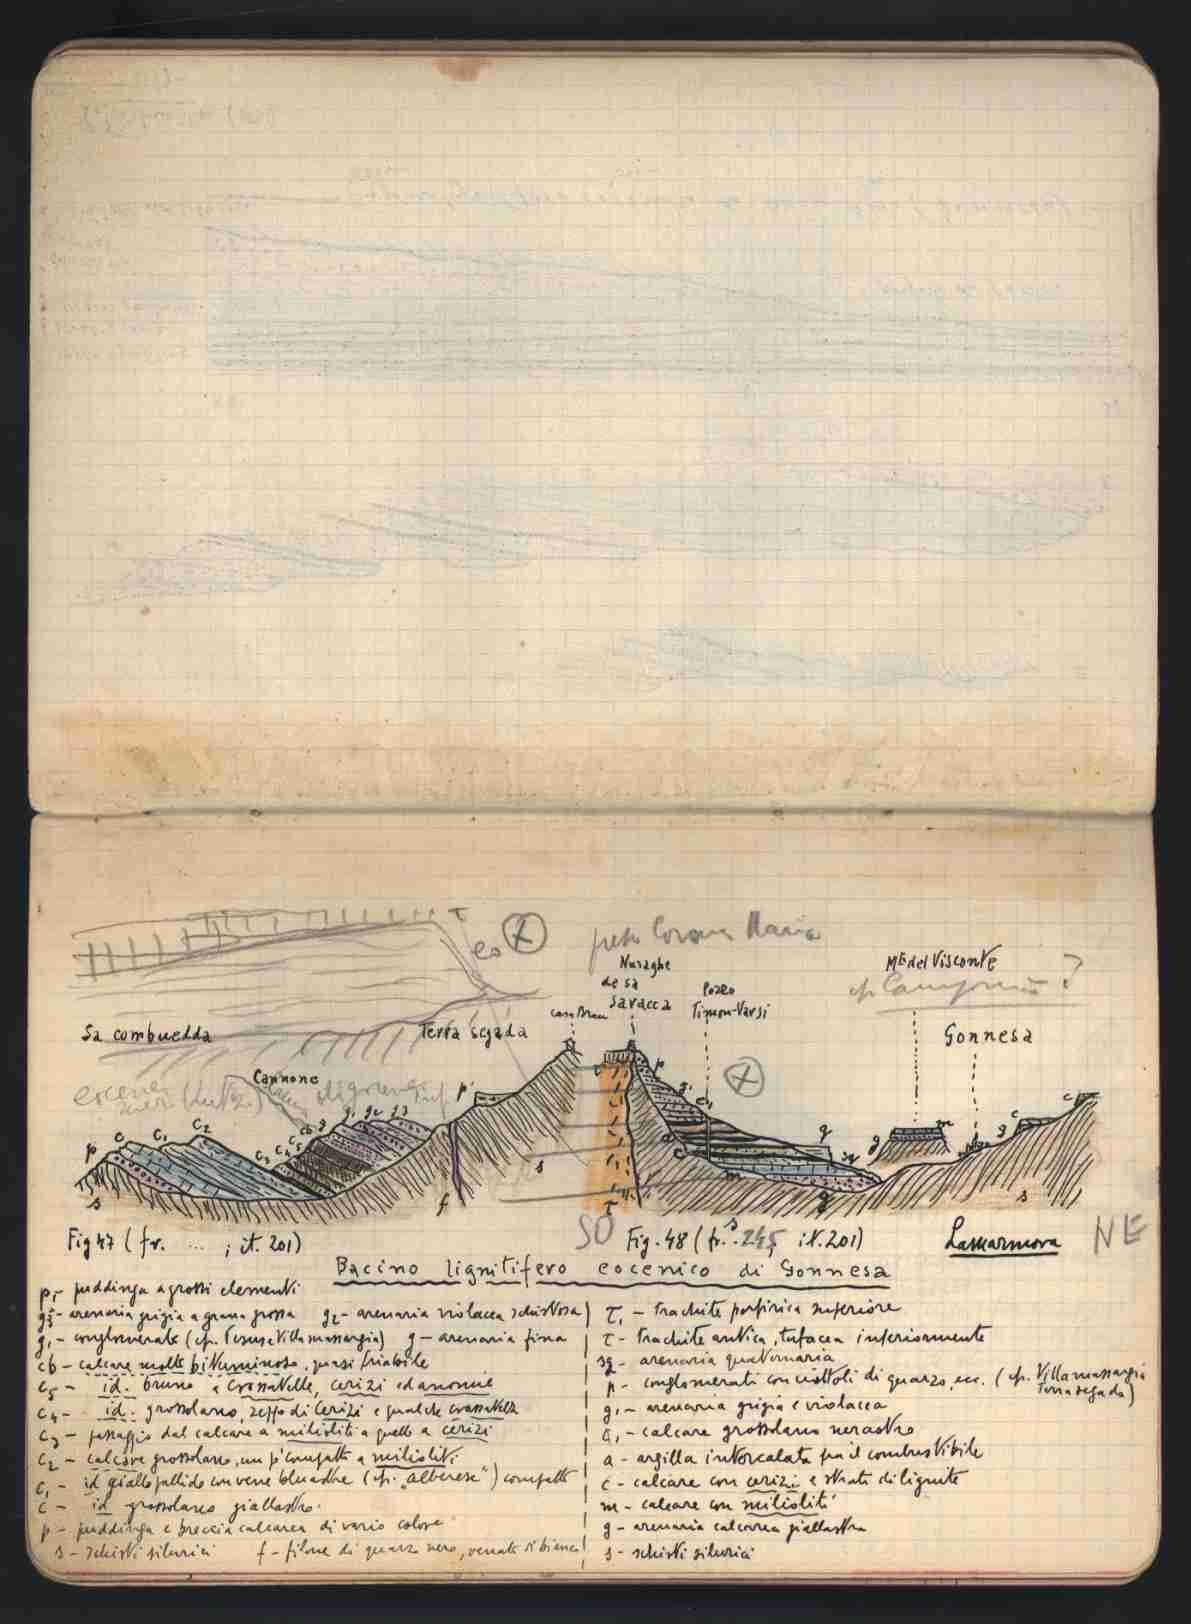 eo
presso Corona Maria
Nuraghe
de sa
Savacca
casa Brau
Pozzo
Timon-Varsi
Mte del Visconte
cfr Campo ?
Sa combuedda
Terra segada
Gonnesa
Cannone
eocene
oligocene inf
p c c1 c2 c3 c4 c5 cb g g1 g2 g3 p
s f s
p g1 c1 a c m g q sq
τ s
g m g c c s
SO
NE
Fig 47 (fr. ... ; it. 201)
Fig. 48 (fr. 245 it. 201)
Lamarmora
Bacino lignitifero eocenico di Gonnesa
p1 - puddinga a grossi elementi
g3 - arenaria grigia a grana grossa g2 - arenaria violacea schistosa
g1 - conglomerato (cfr. Teruse Villamassargia) g - arenaria fina
cb - calcare molle bituminoso, quasi friabile
c5 - id. bruno a crassatelle, cerizi ed anomie
c4 - id. grossolano, zeppo di cerizi e qualche crassatella
c3 - passaggio dal calcare a milioliti a quello a cerizi
c2 - calcare grossolano, un pò compatto a milioliti
c1 - id giallo pallido con vene bluastre (cfr. "alberese") compatto
c - id grossolano giallastro.
p - puddinga e breccia calcarea di vario colore
s - schisti silurici f - filone di quarzo nero, venato di bianco
τ1 - trachite porfirica superiore
τ - trachite antica, tufacea inferiormente
sq - arenaria quaternaria
p - conglomerati con ciottoli di quarzo, ecc. (cfr. Villamassargia
Terrasegada)
g1 - arenaria grigia e violacea
c1 - calcare grossolano nerastro
a - argilla intercalata fra il combustibile
c - calcare con cerizi e strati di lignite
m - calcare con milioliti
g - arenaria calcarea giallastra
s - schisti silurici